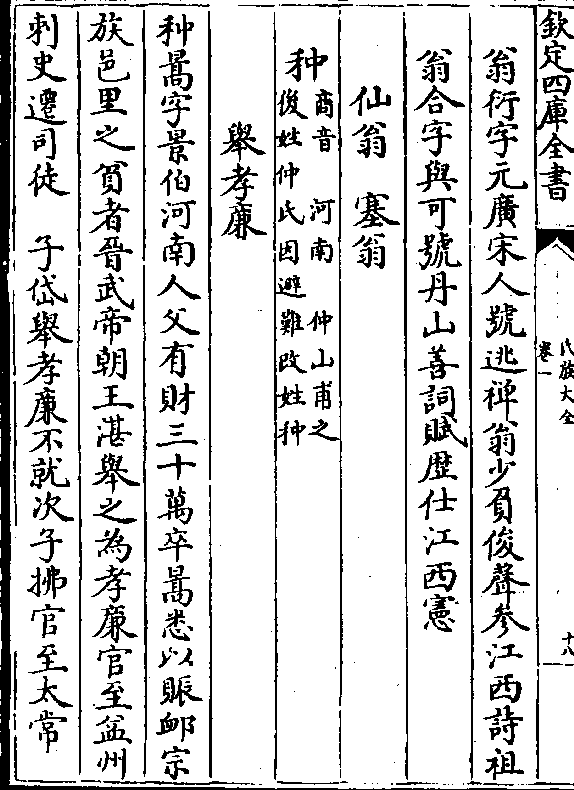 欽定四庫全書
氏族大全
卷一
十八
翁衍字元廣宋人號逃禪翁少負俊聲參江西詩祖
翁合字與可號丹山善詞賦歷仕江西憲
仙翁　塞翁
种商音　河南　仲山甫之
後姓仲氏因避難改姓种
舉孝廉
种暠字景伯河南人父有財三十萬卒暠悉以賑䘏宗
族邑里之貧者晉武帝朝王湛舉之為孝廉官至益州
刺史遷司徒　子岱舉孝廉不就次子拂官至太常